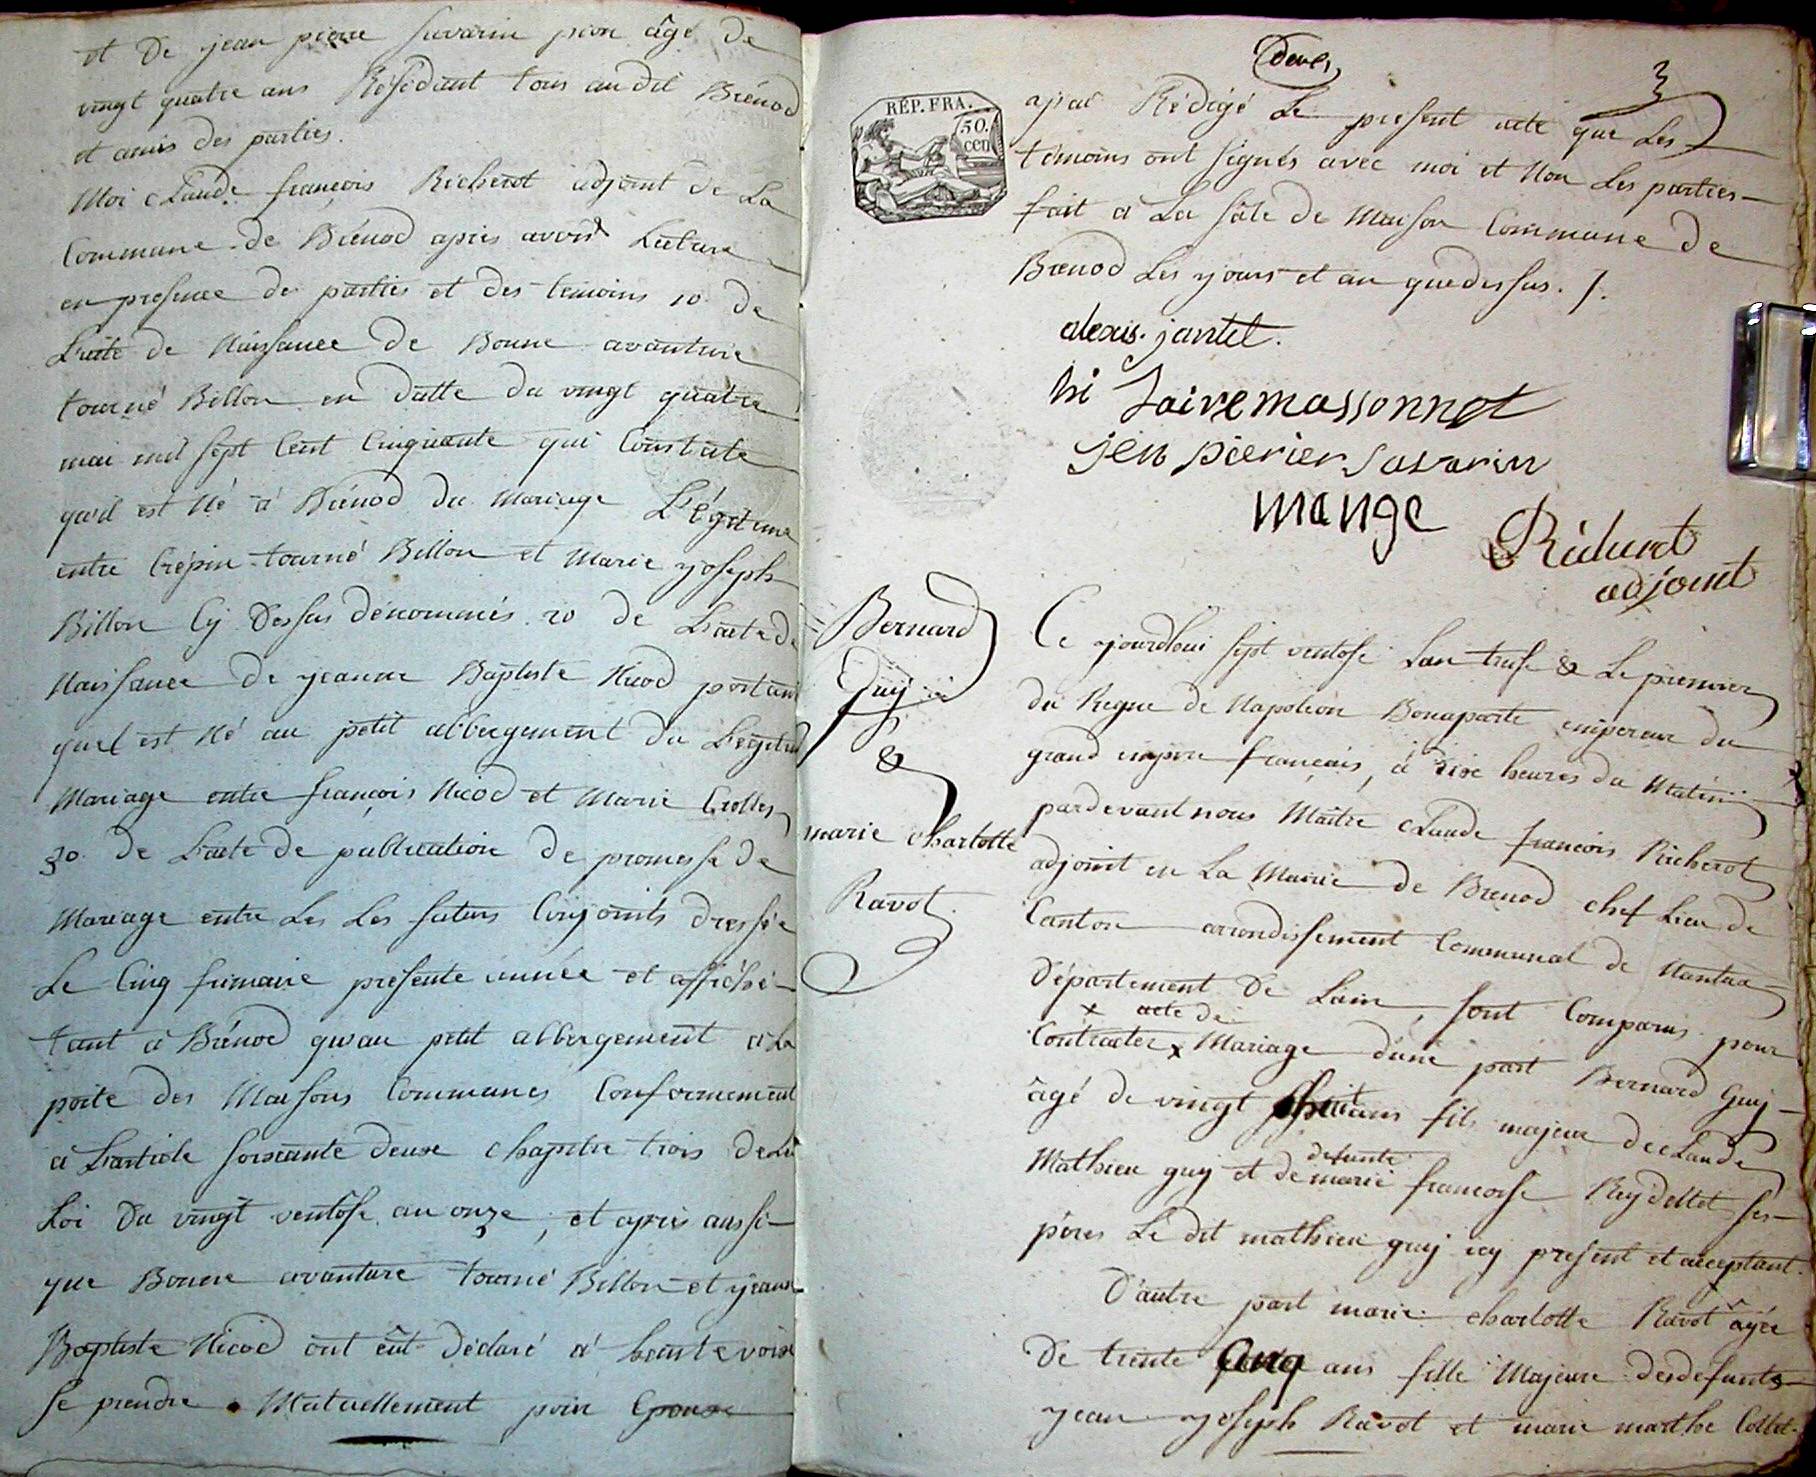 et de jean pierre Savarin pion âgé de
vingt quatre ans Résidant tous audit Brénod
et amis des parties.
Moi Claude françois Richerot adjoint de La
Commune de Brénod apres avoir Lecture
en presence de parties et des temoins 10 de
L'acte de Naissance de Bonne avanture
tourné Billon en datte du vingt quatre
mai mil sept Cent Cinquante qui Constate
qu'il est Né à Brénod du Mariage L'égitime
entre Crépin tourné Billon et Marie yoseph
Billon Cy dessus dénommés. 20 de L'acte de
Naissance de yeanne Baptiste Nicod portant
quel est Né au petit abbergement du L'egitime
Mariage entre françois Nicod et Marie Crollet
30. de L'acte de publication de promesse de
Mariage entre Les Les futurs Conjoints dressée
Le Cinq frimaire presente année et affiché
tant à Brénod qu'au petit abbergement a La
porte des Maisons Communes Conformement
a L'article soixante deux chapitre trois de La
Loi du vingt ventôse an onze, et après aussi
que Bonne avanture tourné Billon et yeanne
Baptiste Nicod ont eût déclaré à hautevoix
se prendre Mutuellement pour Epoux
deux
3
RÉP. FRA.
50.
cen
ajzai Rédigé Le present acte que Les
témoins ont signés avec moi et Non Les parties
fait a La sâle de Maison Commune de
Brenod Les yours et an quedessus. /.
alexis. jantet.
hi lairemassonnet
jen pierier savarin
mange
Richerot
adjoint
Bernard
Guy
&
marie charlotte
Ravot
Ce yourdhui sept ventose Lan treise & Le premier
du Regne de Napoléon Bonaparte empereur du
grand empire français, à dix heures du Matin
pardevant nous Maître Claude francois Richerot
adjoint en La Mairie de Brenod chef Lieu de
Canton arrondissement Communal de Nantua
Département de Lain, sont Comparus pour
x acte de
Contracter x Mariage d'une part Bernard Guy
âgé de vingt huit ans fils majeur de Claude
defunte
Mathieu guy et de marie francoise Reydellet ses
péres Le dit mathieu guy icy present et aceptant.
D'autre part marie charlotte Ravot âgée
de trente Cinq ans fille Majeure des defunts
yean yoseph Ravot et marie marthe Collet